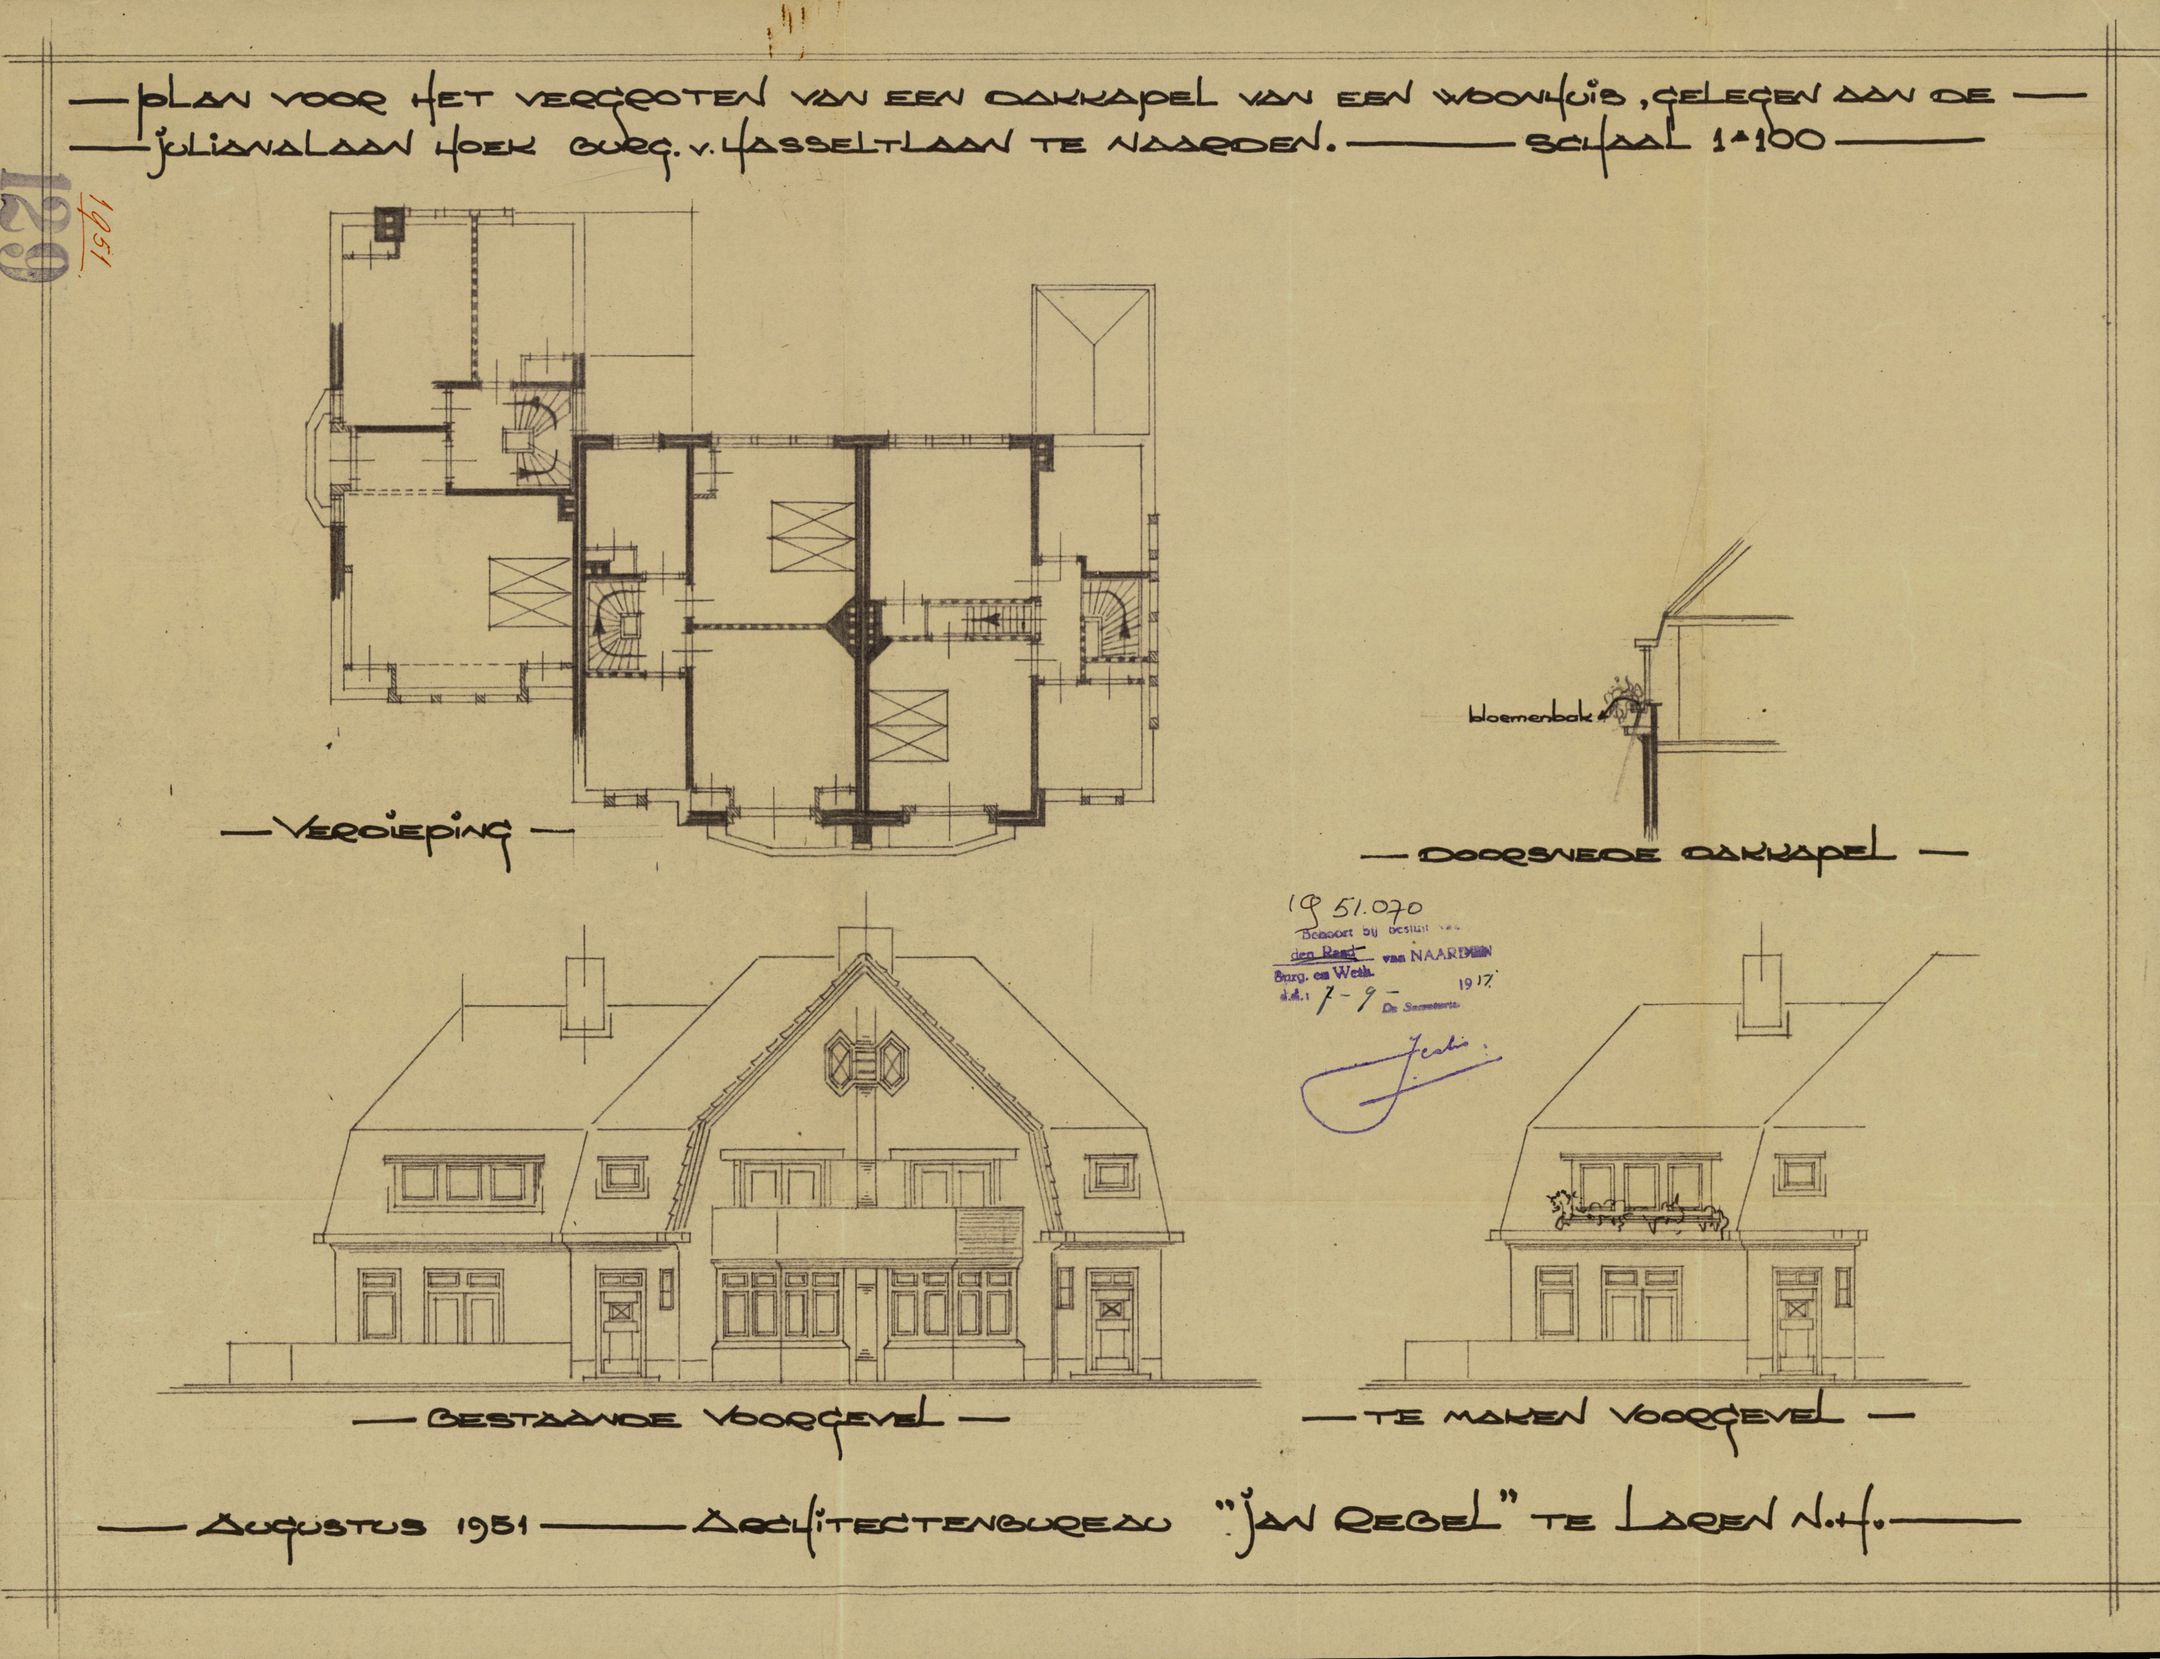 PLAN VOOR HET VERGROTEN VAN EEN DAKKAPEL VAN EEN WOONHUIS, GELEGEN AAN DE
JULIANALAAN HOEK BURG. v. HASSELTLAAN TE NAARDEN. SCHAAL 1 à 100
129
1951
bloemenbak
VERDIEPING
DOORSNEDE DAKKAPEL
1951.070
Behoort bij besluit van
den Raad van NAARDEN
Burg. en Weth.
d.d.: 7-9- 1951
De Secretaris
BESTAANDE VOORGEVEL
TE MAKEN VOORGEVEL
AUGUSTUS 1951 ARCHITECTENBUREAU "JAN REBEL" TE LAREN N.H.